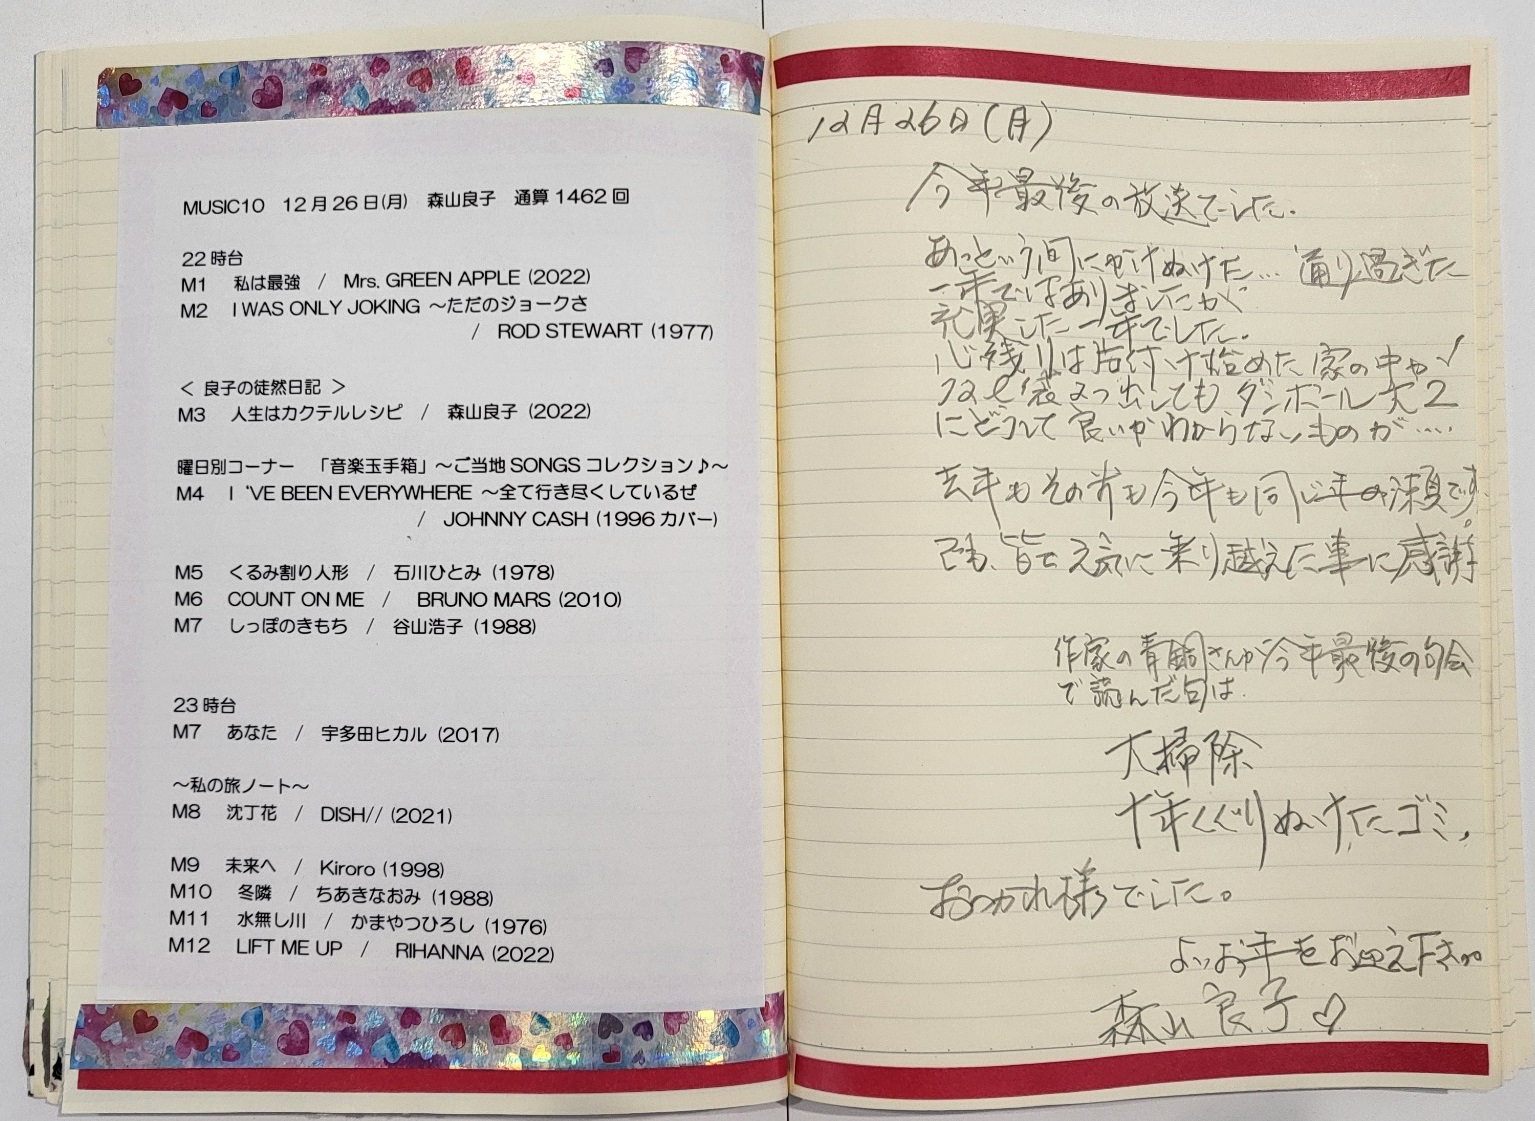 MUSIC10 12月26日(月) 森山良子 通算1462回
22時台
M1 私は最強 / Mrs. GREEN APPLE (2022)
M2 I WAS ONLY JOKING ～ただのジョークさ
/ ROD STEWART (1977)
＜ 良子の徒然日記 ＞
M3 人生はカクテルレシピ / 森山良子 (2022)
曜日別コーナー 「音楽玉手箱」～ご当地SONGSコレクション♪～
M4 I 'VE BEEN EVERYWHERE ～全て行き尽くしているぜ
/ JOHNNY CASH (1996カバー)
M5 くるみ割り人形 / 石川ひとみ (1978)
M6 COUNT ON ME / BRUNO MARS (2010)
M7 しっぽのきもち / 谷山浩子 (1988)
23時台
M7 あなた / 宇多田ヒカル (2017)
～私の旅ノート～
M8 沈丁花 / DISH// (2021)
M9 未来へ / Kiroro (1998)
M10 冬隣 / ちあきなおみ (1988)
M11 水無し川 / かまやつひろし (1976)
M12 LIFT ME UP / RIHANNA (2022)
12月26日(月)
今年最後の放送でした.
あっという間にかけぬけた… 通り過ぎた
一年ではありましたが
充実した一年でした.
心残りは片付け始めた家の中や
出しても ダンボール大2
にどうして良いかわからないものが….
去年もその前も今年も同じ年の瀬です。
でも、皆で元気に乗り越えた事に感謝
作家の青嶋さんが今年最後の句会
で読んだ句は
大掃除
十年くぐりぬけたゴミ,
おつかれ様でした。
よいお年をお迎え下さい
森山良子♡